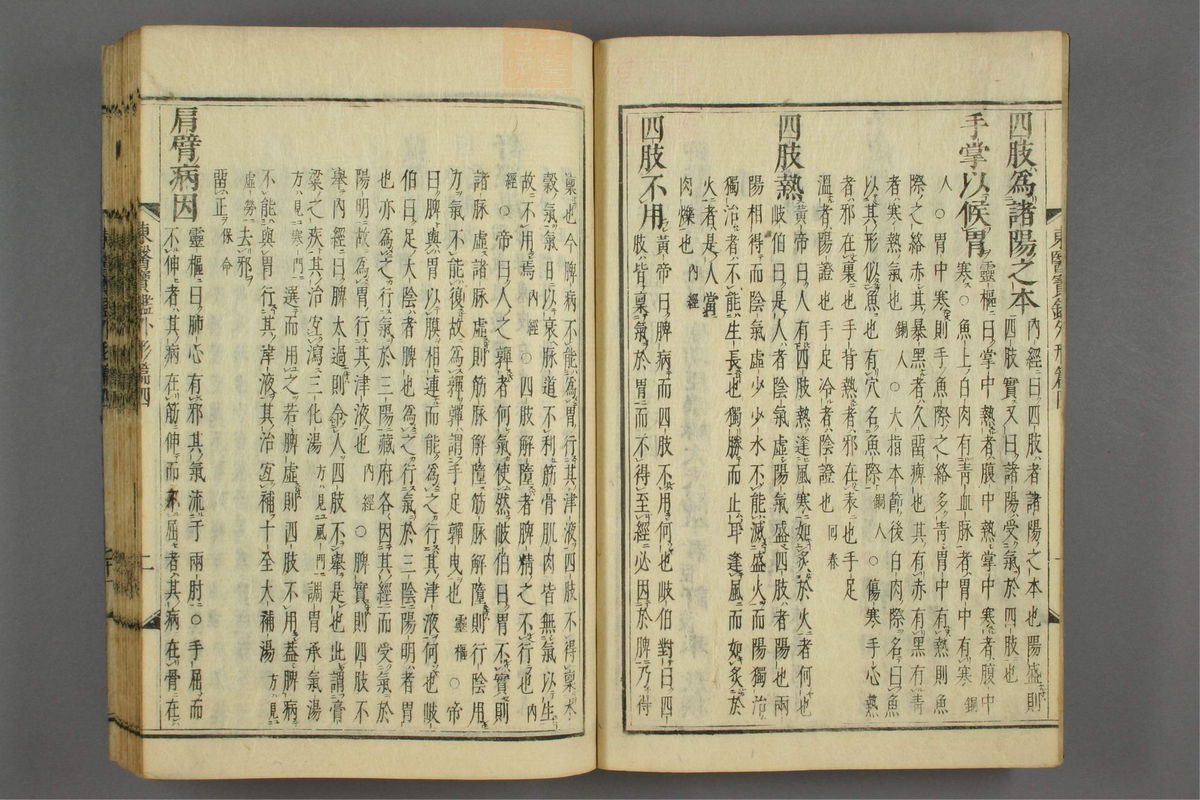 四肢爲諸陽之本 內經曰四肢者諸陽之本也陽盛則
四肢實又曰諸陽受氣於四肢也
手掌以候胃 靈樞曰掌中熱者腹中熱掌中寒者腹中
寒○魚上白肉有青血脉者胃中有寒 銅
人○胃中寒則手魚際之絡多青胃中有熱則魚
際之絡赤其暴黑者久留痺也其有赤有黑有青
者寒熱氣也 銅人○大指本節後白肉際名曰魚
以其形似魚也有穴名魚際 銅人○傷寒手心熱
者邪在裏也手背熱者邪在表也手足
溫者陽證也手足冷者陰證也 回春
四肢熱 黃帝曰人有四肢熱逢風寒如炙於火者何也
岐伯曰是人者陰氣虛陽氣盛四肢者陽也兩
陽相得而陰氣虛少少水不能滅盛火而陽獨治
獨治者不能生長也獨勝而止耳逢風而如炙於
火者是人當
肉爍也 內經
四肢不用 黃帝曰脾病而四肢不用何也岐伯對曰四
肢皆稟氣於胃而不得至經必因於脾乃得
稟也今脾病不能爲胃行其津液四肢不得稟水
穀氣氣日以衰脉道不利筋骨肌肉皆無氣以生
故不用焉 內經○四肢解墮者脾精之不行也 內
經○帝曰人之嚲者何氣使然岐伯曰胃不實則
諸脉虛諸脉虛則筋脉解墮筋脉解墮則行陰用
力氣不能復故爲嚲嚲謂手足嚲曳也 靈樞○帝
曰脾與胃以膜相連而能爲之行其津液何也岐
伯曰足太陰者脾也爲之行氣於三陰陽明者胃
也亦爲之行氣於三陽藏府各因其經而受氣於
陽明故爲胃行其津液也 內經○脾實則四肢不
擧內經曰脾太過則令人四肢不擧是也此謂膏
粱之疾其治宜瀉三化湯 方見風門 調胃承氣湯
方見寒門 選而用之若脾虛則四肢不用蓋脾病
不能與胃行其津液其治宜補十全大補湯 方見
虛勞 去邪
留正 保命
肩臂病因 靈樞曰肺心有邪其氣流于兩肘○手屈而
不伸者其病在筋伸而不屈者其病在骨在
東醫寶鑑外形篇四
二